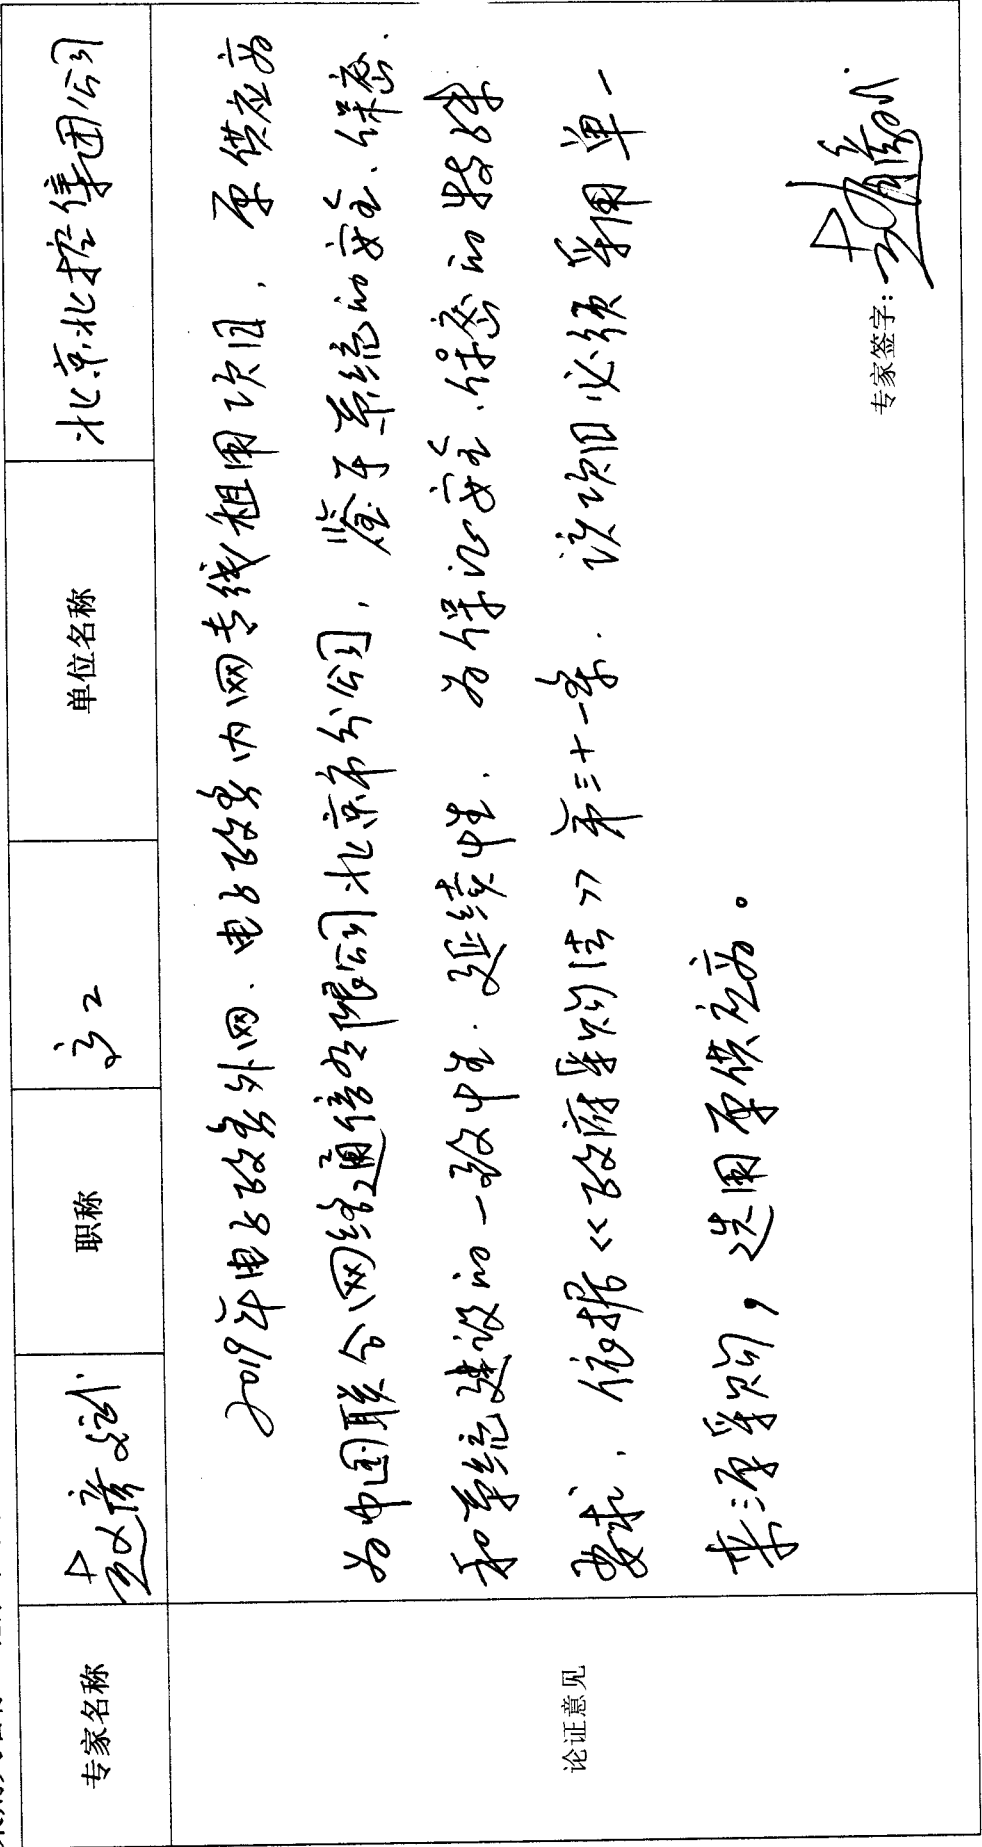 专家名称 职称 高工 单位名称 北京北控集团公司
论证意见
2019年电子政务外网、电子政务内网专线租用项目,原供应商
为中国联合网络通信有限公司北京市分公司,鉴于系统的安全、保密
和系统建设的一致性、延续性,为保证安全、保密的特殊
要求,依据《政府采购法》第三十一条,该项目必须采用单一
来源采购,选用原供应商。
专家签字: